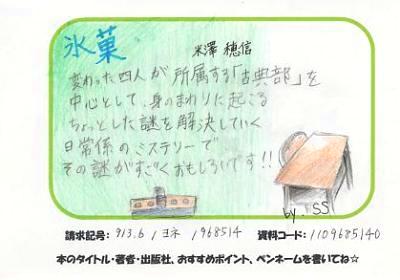 氷菓
米澤 穂信
変わった四人が所属する「古典部」を
中心として、身のまわりに起こる
ちょっとした謎を解決していく
日常係のミステリーで
その謎がすごくおもしろいです!!
by.SS
請求記号: 913.6 / ヨネ / 968514 資料コード: 1109685140
本のタイトル・著者・出版社、おすすめポイント、ペンネームを書いてね☆